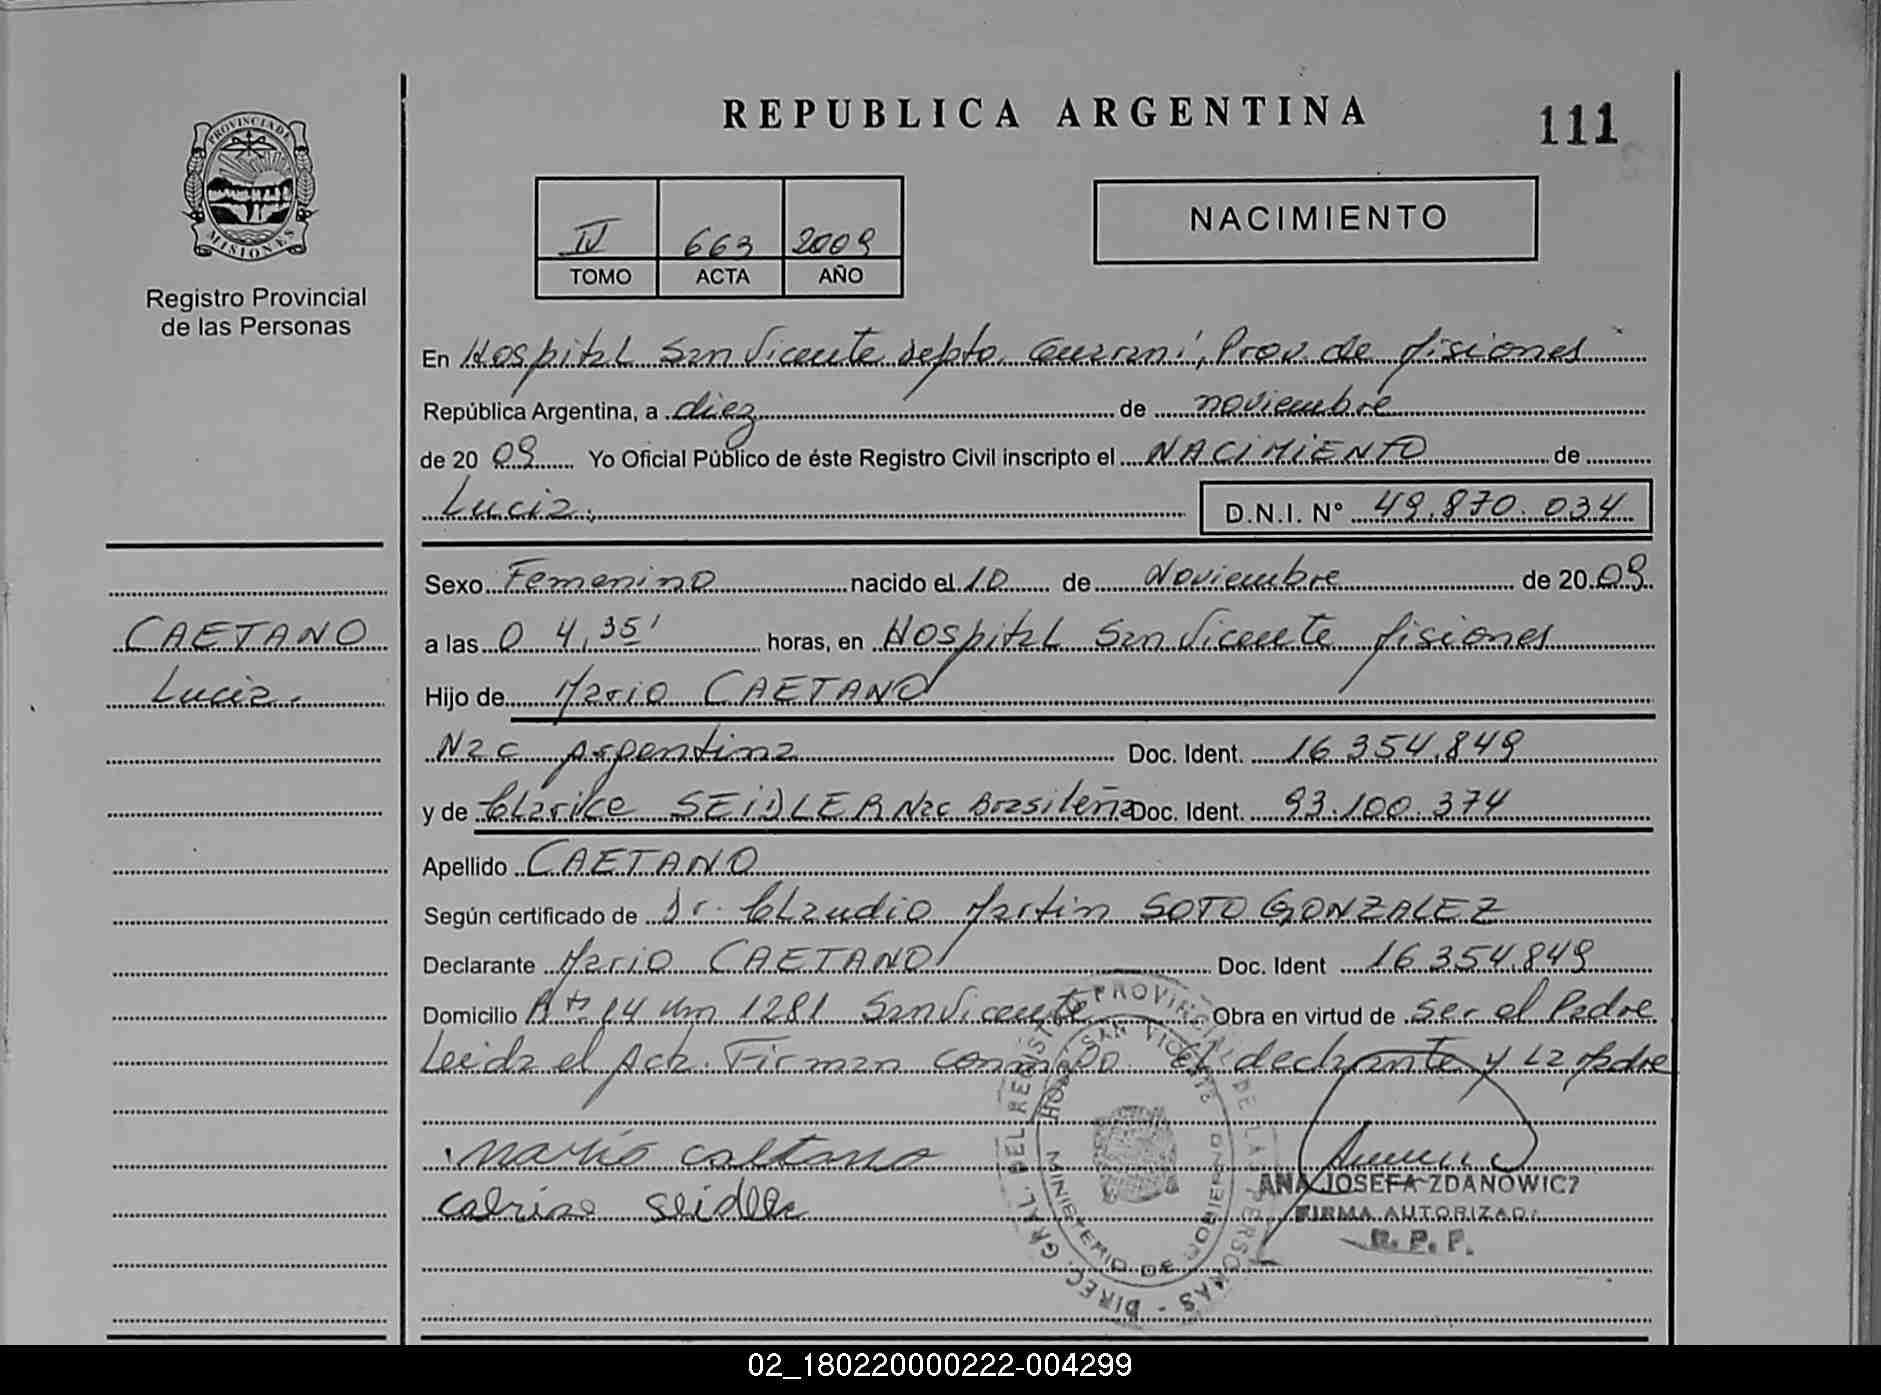 REPUBLICA ARGENTINA
111
PROVINCIA DE MISIONES
Registro Provincial
de las Personas
IV 663 2009
TOMO ACTA AÑO
NACIMIENTO
En Hospital San Vicente depto. Guarani, Prov. de Misiones
República Argentina, a diez de noviembre
de 20 09 Yo Oficial Público de éste Registro Civil inscripto el NACIMIENTO de
Lucia. D.N.I. N° 49.870.034
Sexo Femenino nacido el 10 de Noviembre de 20 09
CAETANO
Lucia.
a las 04,35' horas, en Hospital San Vicente Misiones
Hijo de Mario CAETANO
Nac Argentina Doc. Ident. 16.354.849
y de Clarice SEIDLER Nac Brasileña Doc. Ident. 93.100.374
Apellido CAETANO
Según certificado de Dr. Claudio Martin SOTO GONZALEZ
Declarante Mario CAETANO Doc. Ident 16.354.849
Domicilio Rta 14 Km 1281 San Vicente Obra en virtud de ser el Padre
Leida el Acta. Firman conmigo El declarante y La Madre
mario caetano
seidler
ANA JOSEFA ZDANOWICZ
FIRMA AUTORIZADA
R. P. P.
DIREC. GRAL. DEL REGISTRO PROVINCIAL DE LAS PERSONAS
HOSP. SAN VICENTE
MINISTERIO DE GOBIERNO
02_180220000222-004299